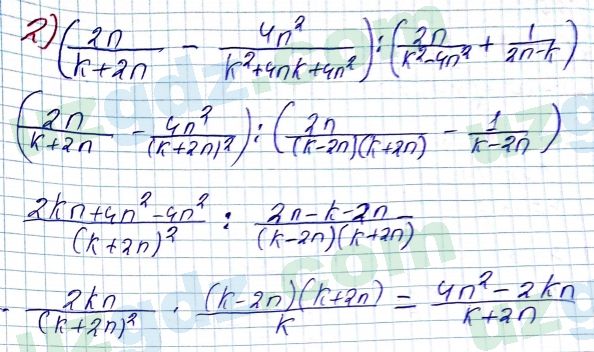 2) (2n/(k+2n) - 4n²/(k²+4nk+4n²)) : (2n/(k²-4n²) + 1/(2n-k))
(2n/(k+2n) - 4n²/(k+2n)²) : (2n/((k-2n)(k+2n)) - 1/(k-2n))
(2kn+4n²-4n²)/(k+2n)² : (2n-k-2n)/((k-2n)(k+2n))
- 2kn/(k+2n)² · ((k-2n)(k+2n))/k = (4n²-2kn)/(k+2n)